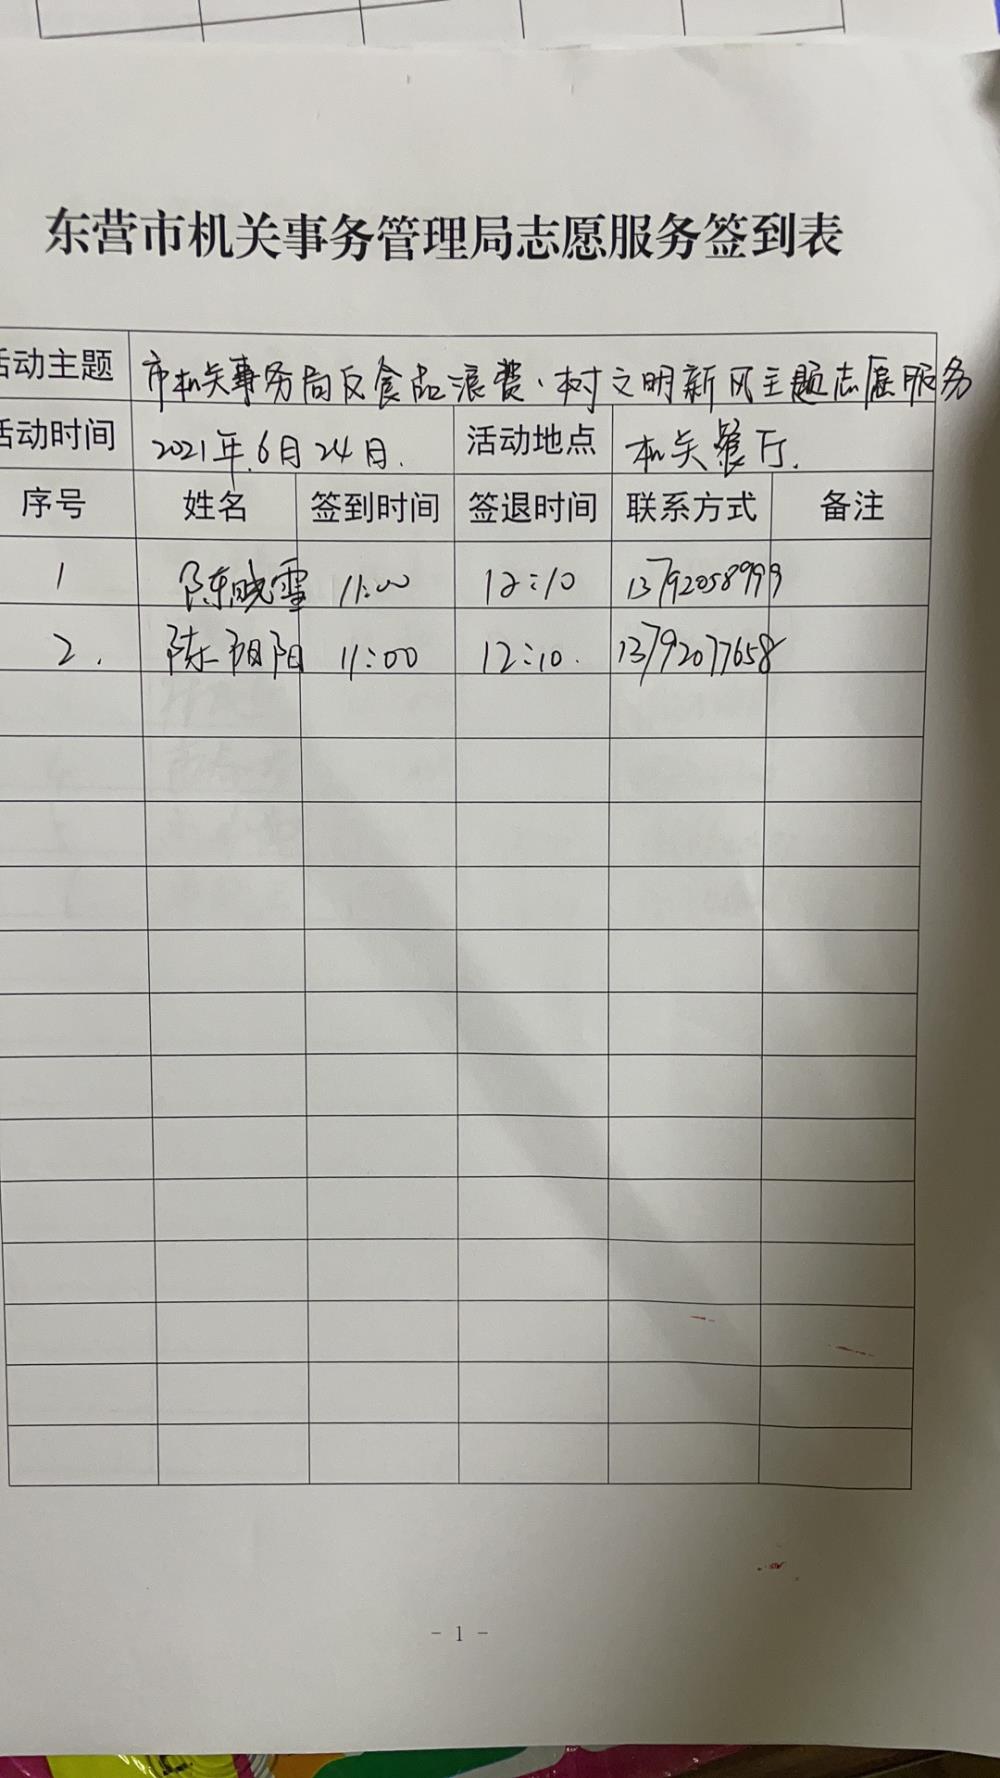 东营市机关事务管理局志愿服务签到表
活动主题 市机关事务局反食品浪费、树文明新风主题志愿服务
活动时间 2021年6月24日. 活动地点 机关餐厅.
序号 姓名 签到时间 签退时间 联系方式 备注
1 陈晓雪 11:00 12:10 13792058999
2. 陈阳阳 11:00 12:10. 13792077658
- 1 -